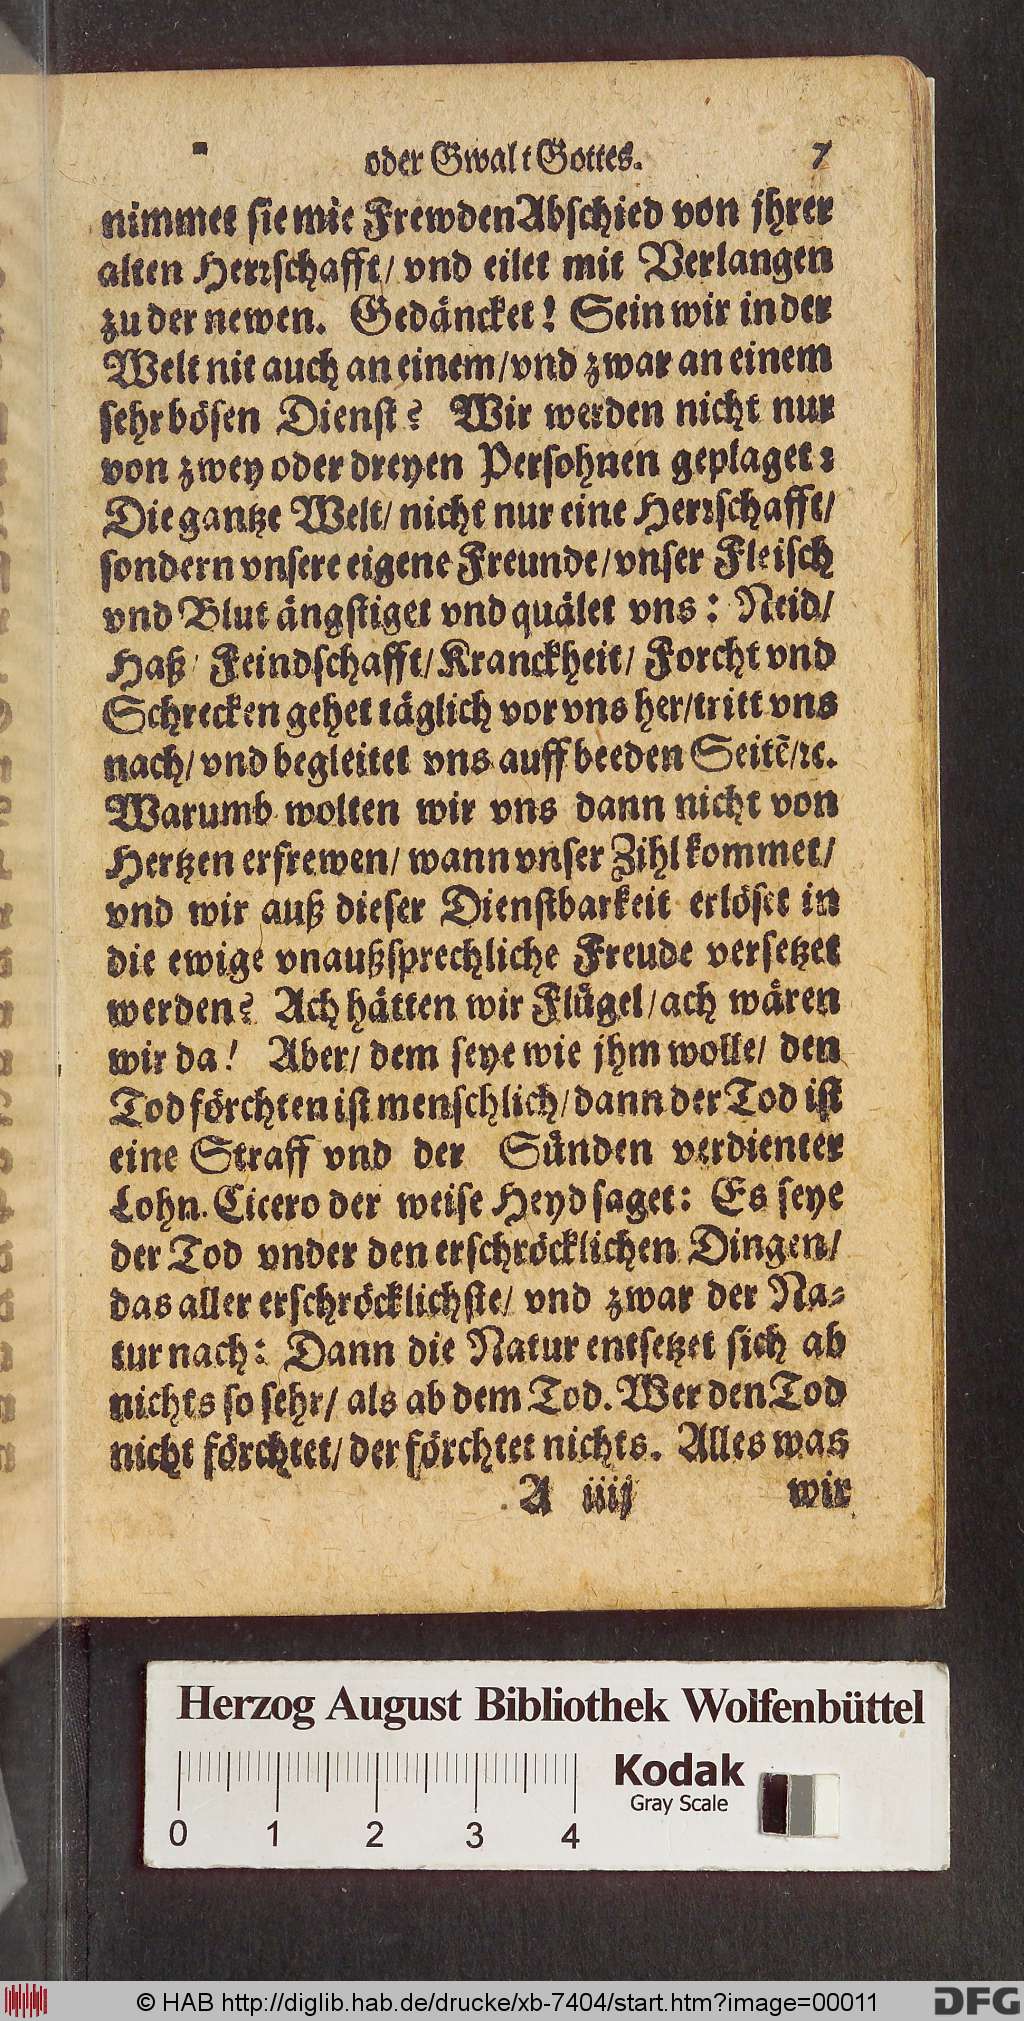 oder Gwalt Gottes. 7
nimmet sie mit Frewden Abschied von jhrer
alten Herrschafft/ vnd eilet mit Verlangen
zu der newen. Gedäncket! Sein wir in der
Welt nit auch an einem/ vnd zwar an einem
sehr bösen Dienst? Wir werden nicht nur
von zwey oder dreyen Persohnen geplaget:
Die gantze Welt/ nicht nur eine Herrschafft/
sondern vnsere eigene Freunde/ vnser Fleisch
vnd Blut ängstiget vnd quälet vns: Neid/
Haß/ Feindschafft/ Kranckheit/ Forcht vnd
Schrecken gehet täglich vor vns her/ tritt vns
nach/ vnd begleitet vns auff beeden Seitẽ/ ꝛc.
Warumb wolten wir vns dann nicht von
Hertzen erfrewen/ wann vnser Zihl kommet/
vnd wir auß dieser Dienstbarkeit erlöset in
die ewige vnaußsprechliche Freude versetzet
werden? Ach hätten wir Flügel/ ach wären
wir da! Aber/ dem seye wie jhm wolle/ den
Tod förchten ist menschlich/ dann der Tod ist
eine Straff vnd der Sünden verdienter
Lohn. Cicero der weise Heyd saget: Es seye
der Tod vnder den erschröcklichen Dingen/
das aller erschröcklichste/ vnd zwar der Na-
tur nach: Dann die Natur entsetzet sich ab
nichts so sehr/ als ab dem Tod. Wer den Tod
nicht förchtet/ der förchtet nichts. Alles was
A iiij wir
Herzog August Bibliothek Wolfenbüttel
Kodak
Gray Scale
0 1 2 3 4
© HAB http://diglib.hab.de/drucke/xb-7404/start.htm?image=00011
DFG